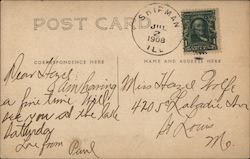 POST CARD
SHIPMAN
JUL
2
1908
ILL
CORRESPONDENCE HERE
NAME AND ADDRESS HERE
Dear Hazel:
Am having
a fine time. Will
see you at the lake
Saturday
Love from
Paul
Miss Hazel Wolfe
4205 Labadie Ave
St Louis
Mo.